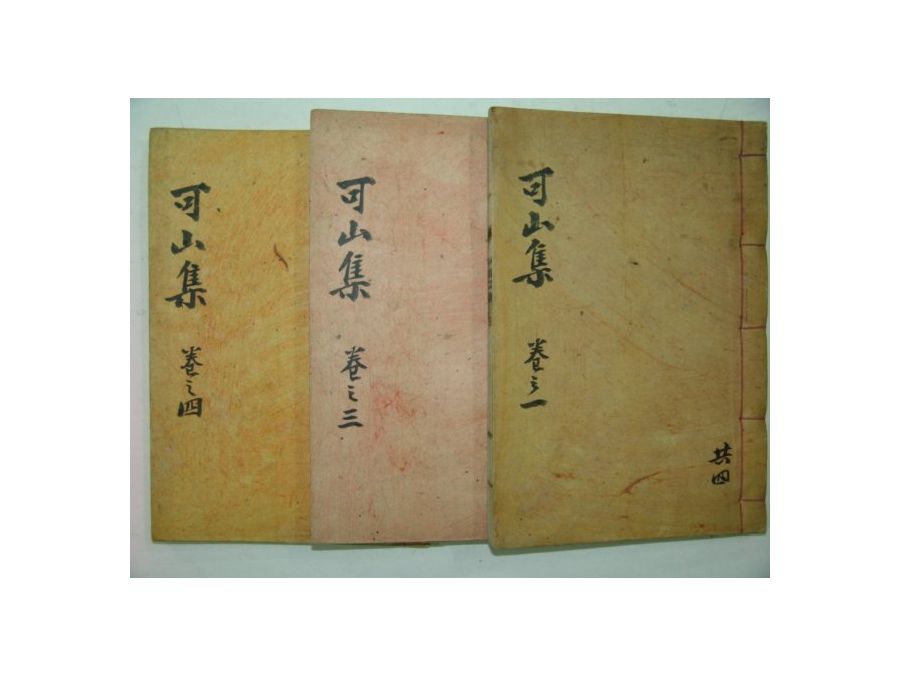 可山集 卷之一
共四
可山集 卷之三
可山集 卷之四